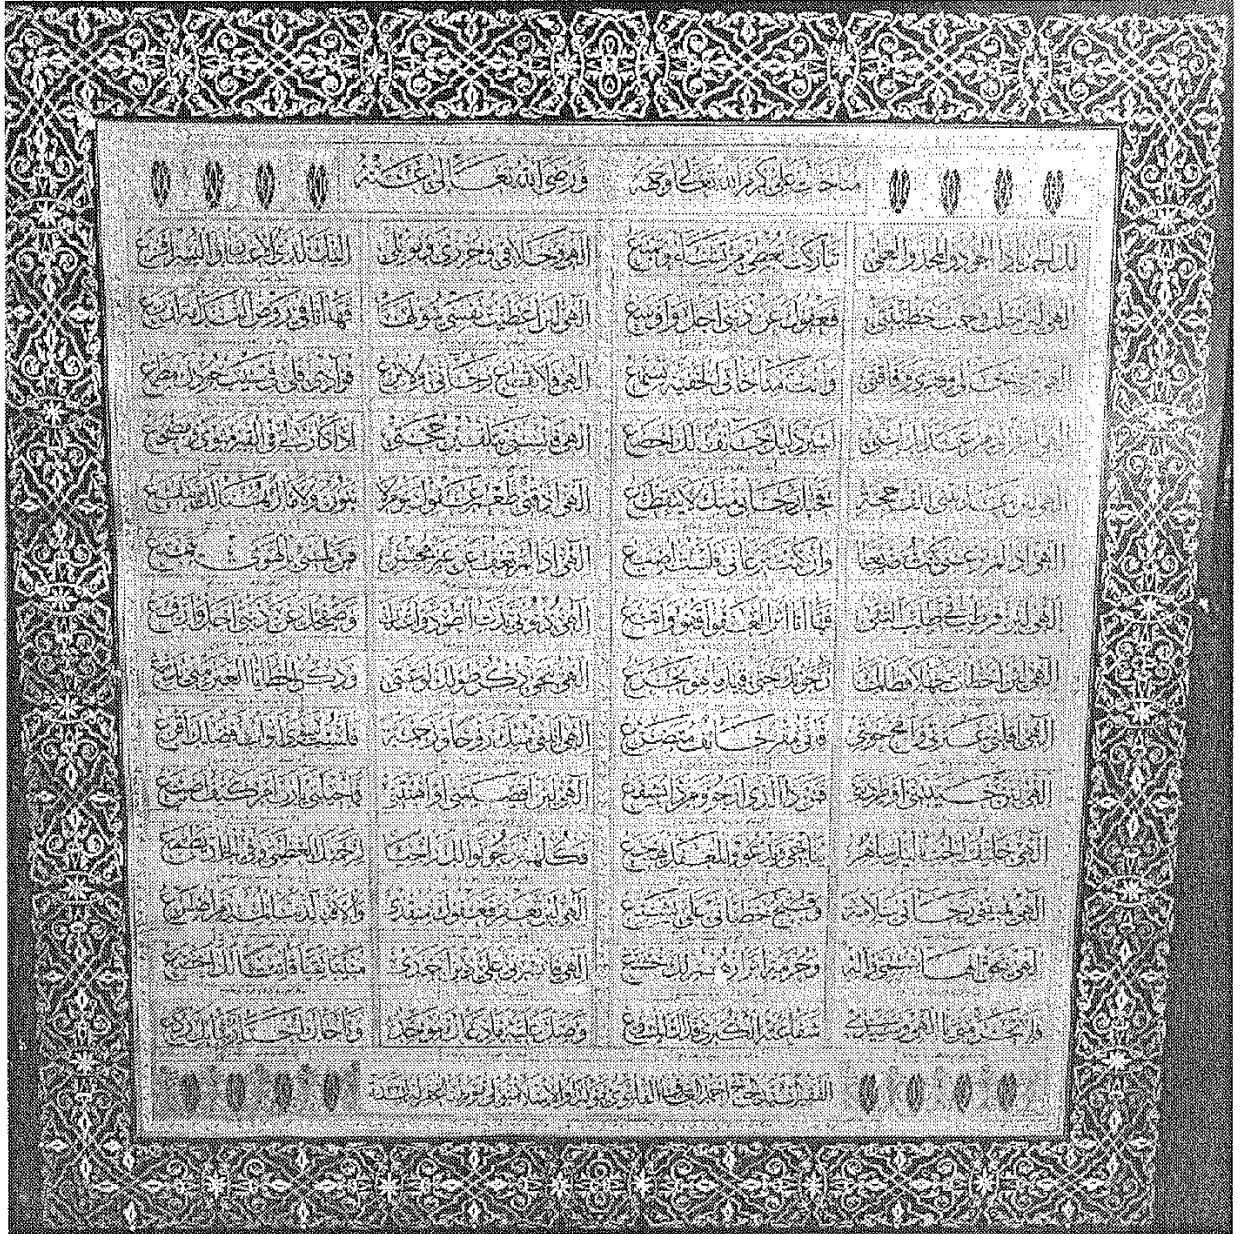 مناجات علي كرم الله تعالى وجهه ورضي الله تعالى عنه
لك الحمد يا ذا الجود والمجد والعلى تباركت تعطي من تشاء وتمنع الهي وخلاقي وحرزي وموئلي اليك لدى الاعسار واليسر افزع
الهي لئن جلت وجمت خطيئتي فعفوك عن ذنبي اجل واوسع الهي لئن اعطيت نفسي سؤلها فها انا في روض الندامة ارتع
الهي ترى حالي وفقري وفاقتي وانت مناجاتي الخفية تسمع الهي فلا تقطع رجائي ولا تزغ فؤادي فلي في سيب جودك مطمع
الهي اجرني من عذابك انني اسير ذليل خائف لك اخضع الهي فآنسني بتلقين حجتي اذا كان لي في القبر مثوى ومضجع
الهي لئن عذبتني الف حجة فحبل رجائي منك لا يتقطع الهي اذقني طعم عفوك يوم لا بنون ولا مال هنالك ينفع
الهي اذا لم ترعني كنت ضائعا وان كنت ترعاني فلست اضيع الهي اذا لم تعف عن غير محسن فمن لمسيء بالهوى يتمتع
الهي لئن فرطت في طلب التقى فها انا اثر العفو اقفو واتبع الهي ذنوبي بذت الطود واعتلت وصفحك عن ذنبي اجل وارفع
الهي لئن اخطأت جهلا فطالما رجوتك حتى قيل ما هو يجزع الهي ينحي ذكر طولك لوعتي وذكر الخطايا العين مني يدمع
الهي اقلني عثرتي وامح حوبتي فاني مقر خائف متضرع الهي انلني منك روحا ورحمة فلست سوى ابواب فضلك اقرع
الهي لئن خيبتني او طردتني فمن ذا الذي ارجو ومن ذا يشفع الهي لئن اقصيتني او اهنتني فما حيلتي يا رب ام كيف اصنع
الهي حليف الحب بالليل ساهر يناجي ويدعو والمغفل يهجع وكلهم يرجو نوالك راجيا لرحمتك العظمى وفي الخلد يطمع
الهي يمنيني رجائي سلامة وقبح خطيئاتي علي يشنع الهي فان تعفو فعفوك منقذي والا فبالذنب المدمر اصرع
الهي بحق الهاشمي وآله وحرمة ابرار هم لك خشع الهي فانشرني على دين احمد منيبا تقيا قانتا لك اخضع
ولا تحرمني يا الهي وسيدي شفاعته الكبرى فذاك المشفع وصل عليه ما دعاك موحد وناجاك اخيار ببابك ركع